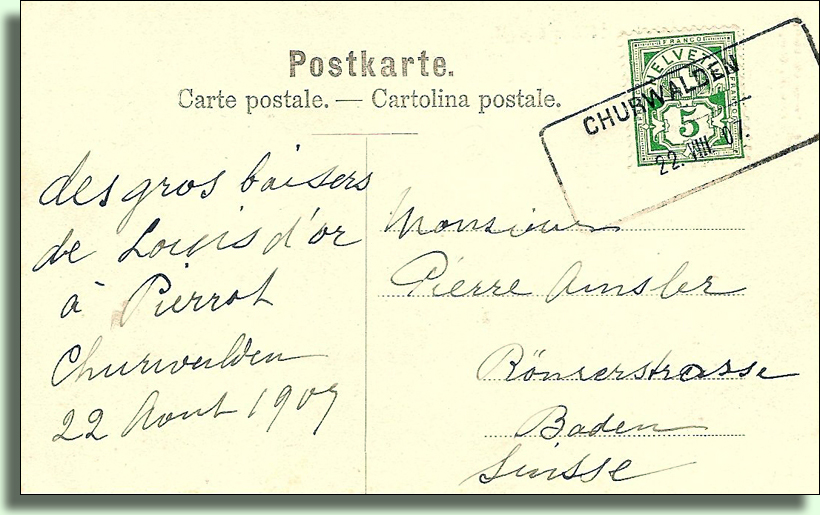 Postkarte.
Carte postale. — Cartolina postale.
HELVETIA
FRANCO
5
CHURWALDEN
22. VIII. 07.
des gros baisers
de Louis d'or
à Pierrot
Churwalden
22 Aout 1907
Monsieur
Pierre Amsler
Baden
Suisse